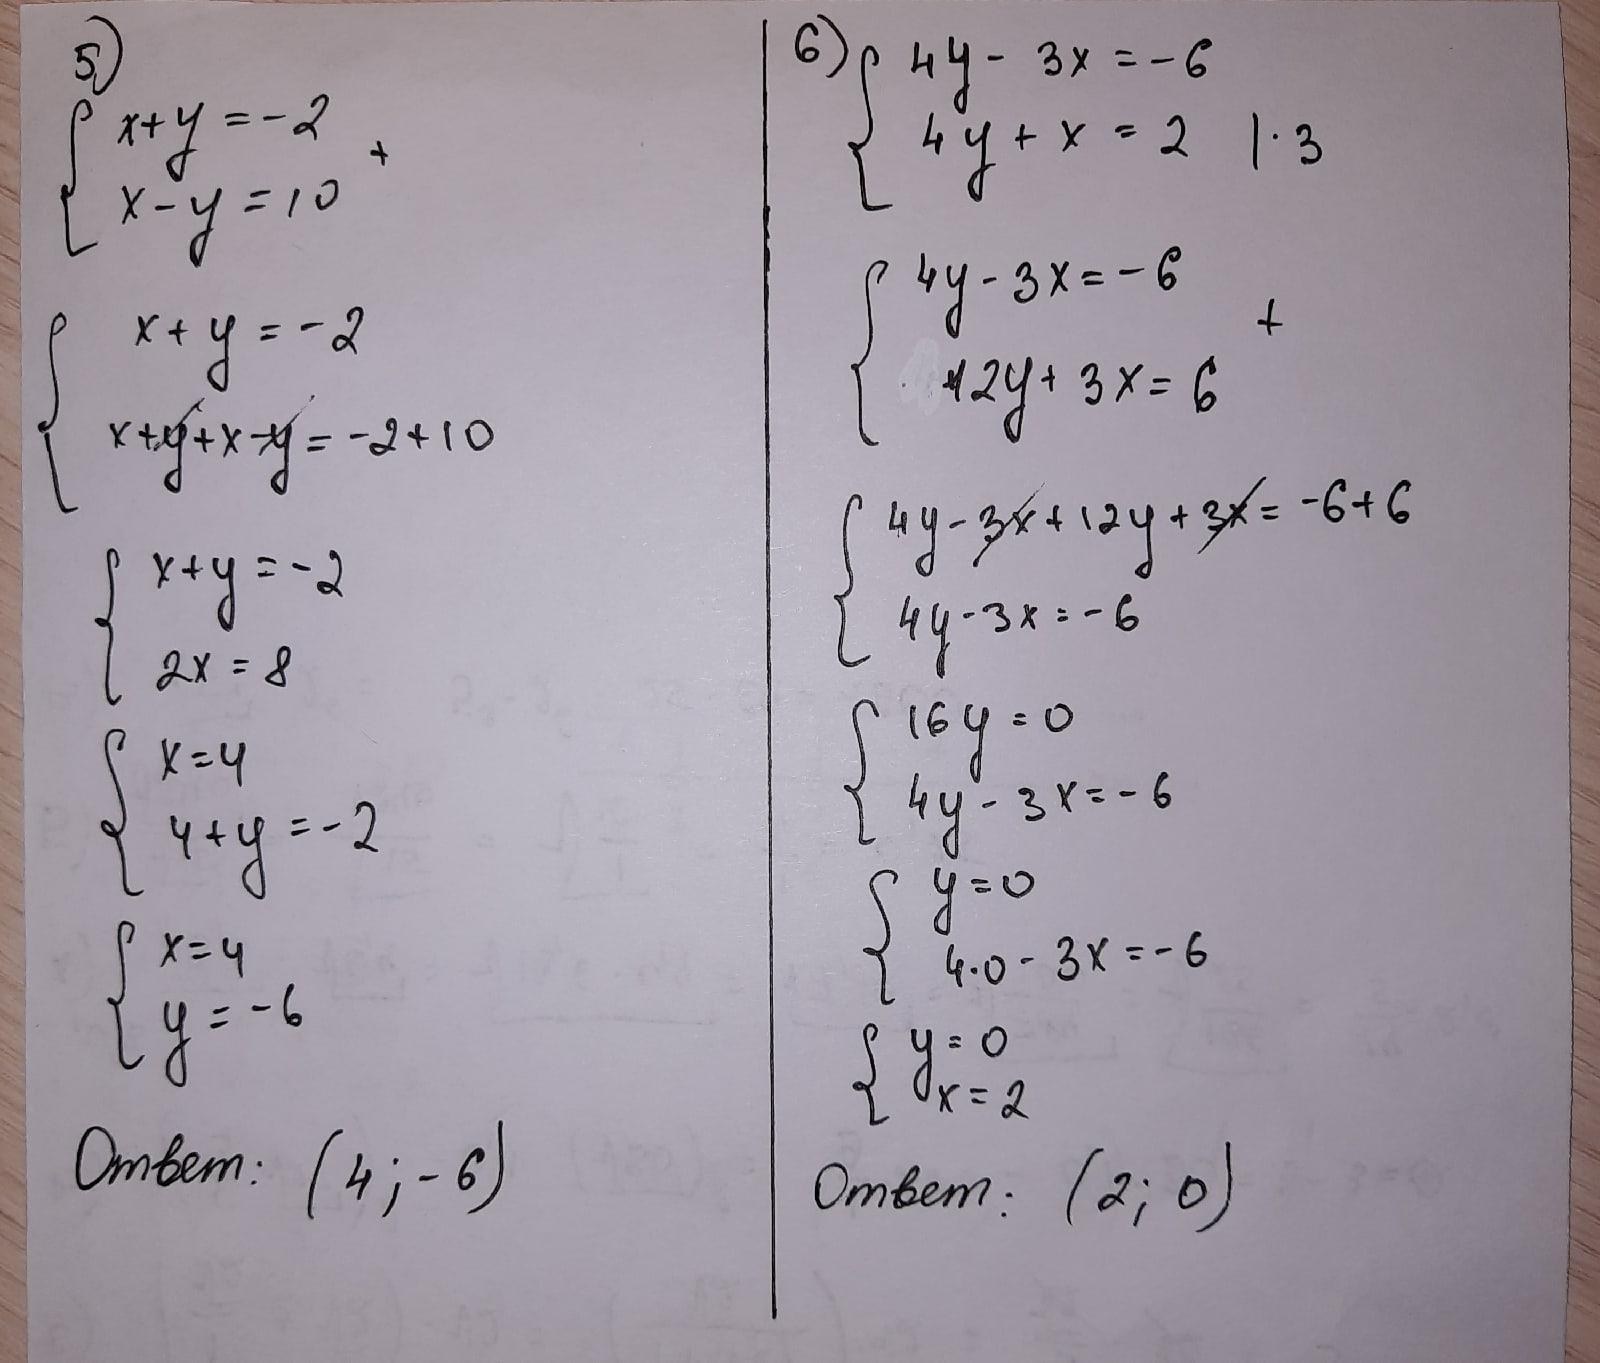 5)
x+y=-2
+
x-y=10
x+y=-2
x+y+x-y=-2+10
x+y=-2
2x=8
x=4
4+y=-2
x=4
y=-6
Ответ: (4;-6)
6)
4y-3x=-6
4y+x=2 |·3
4y-3x=-6
+
12y+3x=6
4y-3x+12y+3x=-6+6
4y-3x=-6
16y=0
4y-3x=-6
y=0
4·0-3x=-6
y=0
x=2
Ответ: (2;0)